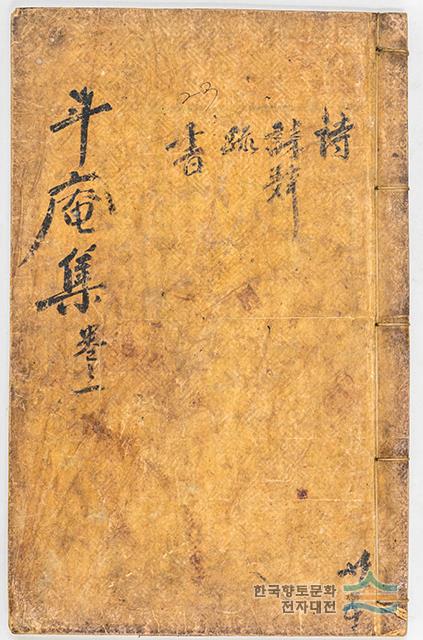 斗庵集 卷之一
詩
疏
書
한국향토문화
전자대전